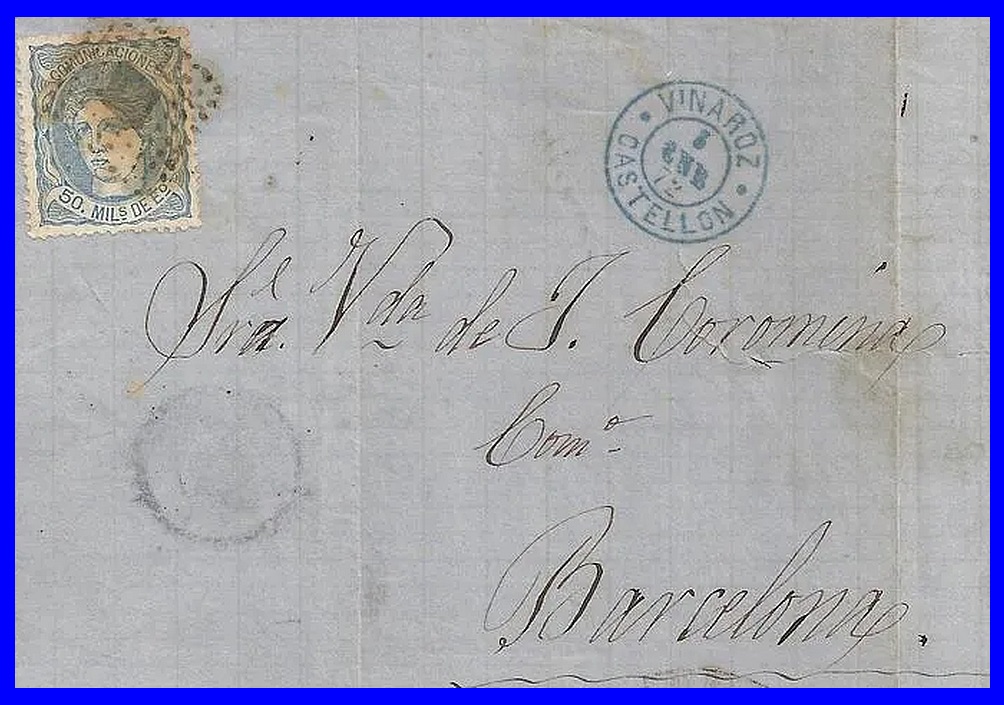 COMUNICACIONES
50. MILS DE ESO
VINAROZ
ENE
72
CASTELLON
Sra. Vda de J. Coromina
Como
Barcelona.